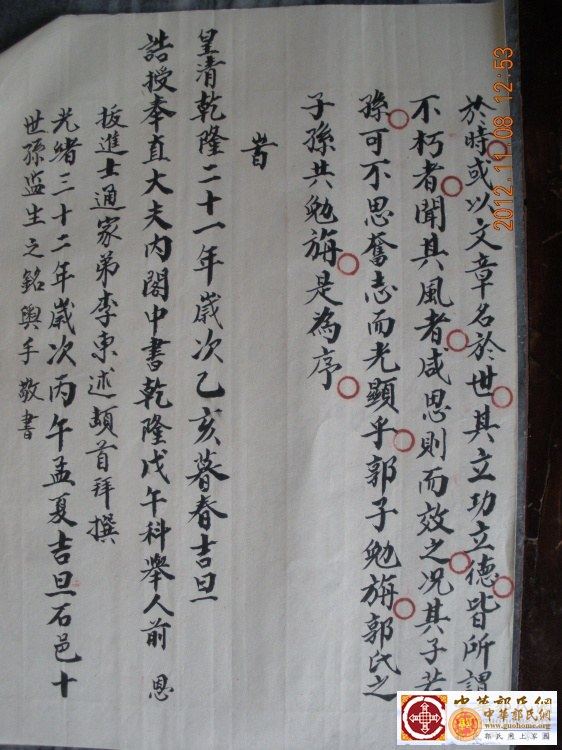 於時或以文章名於世其立功立德皆所謂
不朽者聞其風者咸思則而效之况其子若
孫可不思奮志而光顯乎郭子勉旃郭氏之
子孫共勉旃是為序
皆
皇清乾隆二十一年歲次乙亥暮春吉旦
誥授奉直大夫内閣中書乾隆戊午科舉人前 恩
拔進士通家弟李東述頓首拜撰
光緒三十二年歲次丙午孟夏吉旦石邑十
世孫监生之銘輿手敬書
2012.11.08 12:53
中華郭氏網
中華郭氏網
www.guohome.org
郭氏網上家園